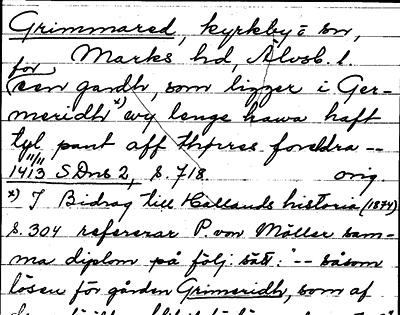 Grimmared, kyrkby i sn,
Marks hd, Älvsb. l.
for
een gardh, som ligger i Ger-
meridh x) wy lenge hawa haft
tyl pant aff thpres foreldra --
11/11
1413 SDns 2, s. 718. orig.
x) I Bidrag till Hallands historia (1874)
s. 304 refererar P. von Möller sam-
ma diplom på följ. sätt: "-- såsom
lösen för gården Grimeridh, som af